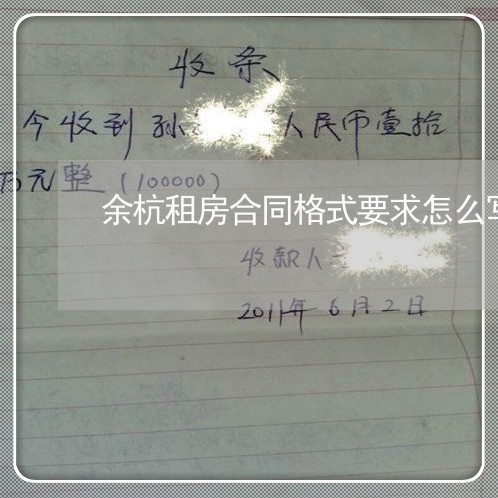 收条
今收到孙 人民币壹拾
万元整(100000)
余杭租房合同格式要求怎么写
收款人
2011年6月2日